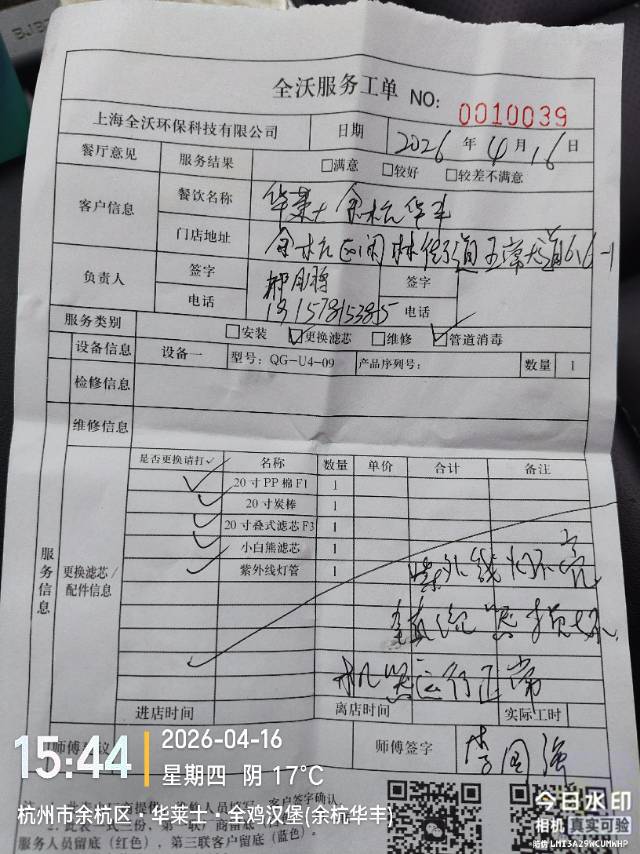 全沃服务工单 NO: 0010039
上海全沃环保科技有限公司 日期 2026 年 4 月 16 日
餐厅意见 服务结果 □满意 □较好 □较差不满意
客户信息 餐饮名称 华莱士余杭华丰
门店地址 余杭区闲林街道五常大道66-1
负责人 签字 签字
电话 电话
服务类别 □安装 ☑更换滤芯 □维修 ☑管道消毒
设备信息 设备一 型号: QG-U4-09 产品序列号: 数量 1
检修信息
维修信息
服务信息
更换滤芯/配件信息
是否更换请打✓ 名称 数量 单价 合计 备注
✓ 20寸PP棉F1 1
✓ 20寸炭棒 1
✓ 20寸叠式滤芯F3 1
✓ 小白熊滤芯 1
✓ 紫外线灯管 1
紫外线灯不亮
整流器损坏
机器运行正常
进店时间 离店时间 实际工时
师傅签字 李国强
15:44
2026-04-16
星期四 阴 17℃
杭州市余杭区·华莱士·全鸡汉堡(余杭华丰)
服务人员留底（红色）、第三联客户留底（蓝色）。
今日水印
相机 真实可验
防伪 LMI3A29WCUMWHP